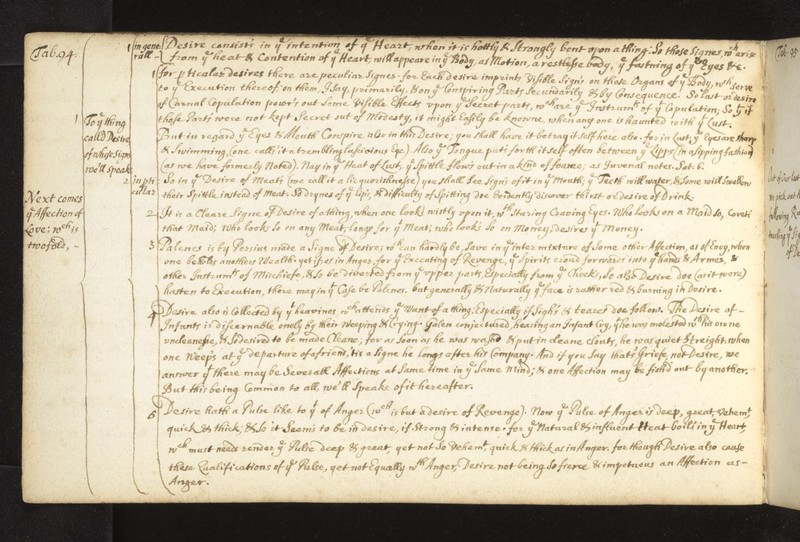 Tab. 94.
Next comes
yͤ Affection of
Love: wᶜʰ is
twofold, -
1
To yͤ thing
call'd Desire,
of whose Signs
we'll speak
1 in gene
rall -
2 in pti-
cular
Desire consists in yͤ intention of yͤ Heart, when it is hottly & Strongly bent upon a thing. So those Signes, wᶜʰ arise
from yͤ heat & Contention of yͤ Heart, will appeare in yͤ Body, as Motion, a restlesse body, yͤ fastning of yͤ Eyes &c.
1 for pticular desires there are peculiar Signes. for Each desire imprints Visible Signs on those Organs of yͤ Body, wᶜʰ serve
to yͤ Execution thereof: on them, I Say, primarily, & on yͤ Conspiring Parts Secundarily & by Consequence. So Lust or desire
of Carnal Copulation powrs out Some Visible Effects upon yͤ Secret parts, wᶜʰ are yͤ Instrumᵗˢ of yͤ Copulation, So yᵗ if
those Parts were not kept Secret out of Modesty, it might Easily be Knowne, when any one is haunted with yͤ Lust.
But in regard yͤ Eys & Mouth Conspire also in this Desire; you shall have it betray it self here also. for in Lust, yͤ Eyes are sharp
& Swimming, (one calls it a trembling lascivious Eye). Also yͤ Tongue puts forth it self often between yͤ Lipps (in a lisping fashion)
(as we have formerly Noted). Nay in yͤ Heat of Lust, yͤ Spittle flows out in a kind of foame; as Juvenal notes. Sat. 6.
So in yͤ Desire of Meats (we call it a licquorishnesse) you shall See Signs of it in yͤ Mouth; yͤ Teeth will water, & Some will Swallow
their Spittle instead of Meat. So Drynes of yͤ Lips, & difficulty of Spitting Doe Evidently discover thirst or desire of Drink.
2 It is a Cleare Signe of Desire of a thing, when one looks wistly upon it, wᵗʰ Staring Craving Eyes. Who looks on a Maid So, Covets
that Maid; Who looks So on any Meat, longs for yͤ Meat; who looks So on Money, desires yͤ Money.
3 Palenes is by Persius made a Signe of Desire; wᶜʰ can hardly be, Save in yͤ inter mixture of Some other Affection, as of Envy, when
one beholds anothers Wealth: yet as in Anger, for yͤ Executing of Revenge, yͤ Spirits crowd forwards into yͤ hands & Armes, &
other Instrumᵗˢ of Mischiefe, & So be diverted from yͤ upper parts, Especially from yͤ Cheeks, So also Desire doe (as it were)
hasten to Execution, there may in yͤ Case be Palenes. but generally & Naturally yͤ face is rather red & burning in Desire.
4 Desire also is Collected by yͤ heavines wᶜʰ attends yͤ Want of a thing; Especially if Sighs & teares doe follow. The Desire of -
Infants is discernable onely by their Weeping & Crying. Galen conjectured, hearing an Infant Cry, yᵗ he was molested wᵗʰ his owne
uncleanesse, & So desired to be made Cleane; for as soon as he was washd & put in cleane Clouts, he was quiet Streight. when
one Weeps at yͤ departure of a friend, 'tis a Signe he longs after his Company. And if you Say that's Griefe, not Desire, we
answer yͤ there may be Severall Affections at Same time in yͤ Same Mind; & one Affection may be fish'd out by another,
But this being Common to all, we'll Speake of it hereafter.
5 Desire hath a Pulse like to yᵗ of Anger (wᶜʰ is but a desire of Revenge). Now yͤ Pulse of Anger is deep, great, Vehemᵗ,
quick & thick; & So it Seems to be in desire, if Strong & intense: for yͤ Natural & influent Heat boils in yͤ Heart,
wᶜʰ must needs render yͤ Pulse deep & great, yet not So Vehemᵗ, quick & thick as in Anger, for though Desire also cause
these Qualifications of yͤ Pulse, yet not Equally wᵗʰ Anger, Desire not being So fierce & impetuous an Affection as -
Anger.
Tab. 95